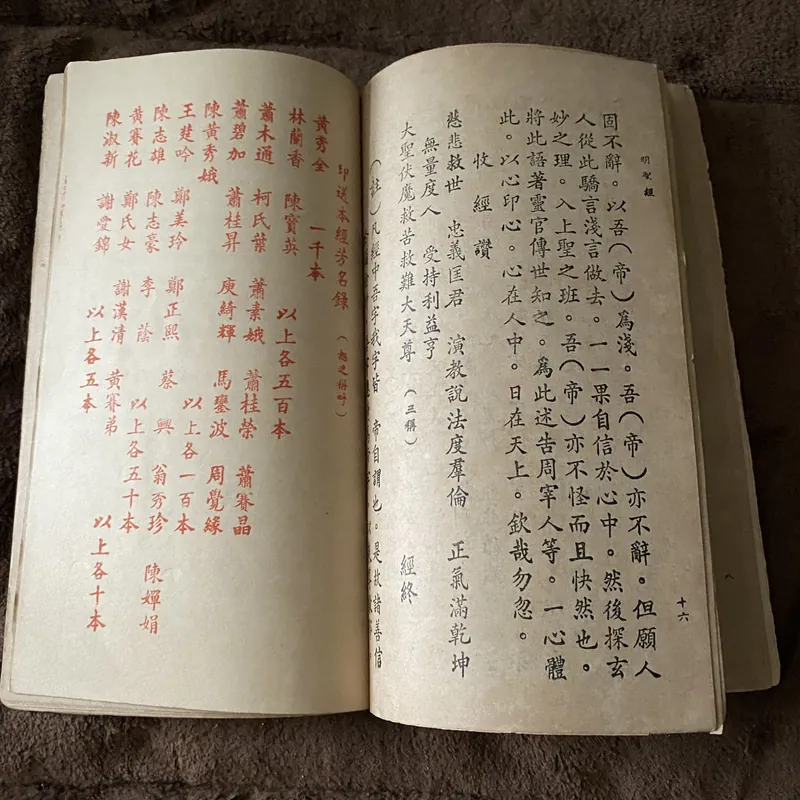 明聖經
十六
固不辭。以吾（帝）為淺。吾（帝）亦不辭。但願人
人從此驕言淺言做去。一一果自信於心中。然後探玄
妙之理。入上聖之班。吾（帝）亦不怪而且快然也。
將此語著靈官傳世知之。為此述告周宰人等。一心體
此。以心印心。心在人中。日在天上。欽哉勿忽。
收經讚
慈悲救世 忠義匡君 演教說法度羣倫 正氣滿乾坤
無量度人 受持利益亨
大聖伏魔救苦救難大天尊（三稱） 經終
（註）凡經中吾字我字皆 帝自謂也。是故諸善信
印送本經芳名錄
黃秀全 一千本
林蘭香 陳寶英 以上各五百本
蕭木通 柯氏葉 蕭素娥 蕭桂榮 蕭賽晶
蕭碧加 蕭桂昇 庾綺輝 馬鑾波 周覺緣
陳黃秀娥 以上各一百本
王楚吟 鄭美玲 鄭正熙 蔡興 翁秀珍
陳志雄 陳志豪 李蔭 以上各五十本
黃賽花 鄭氏女 謝漢清 黃賽弟 陳嬋娟
陳淑新 謝愛錦 以上各五本
以上各十本